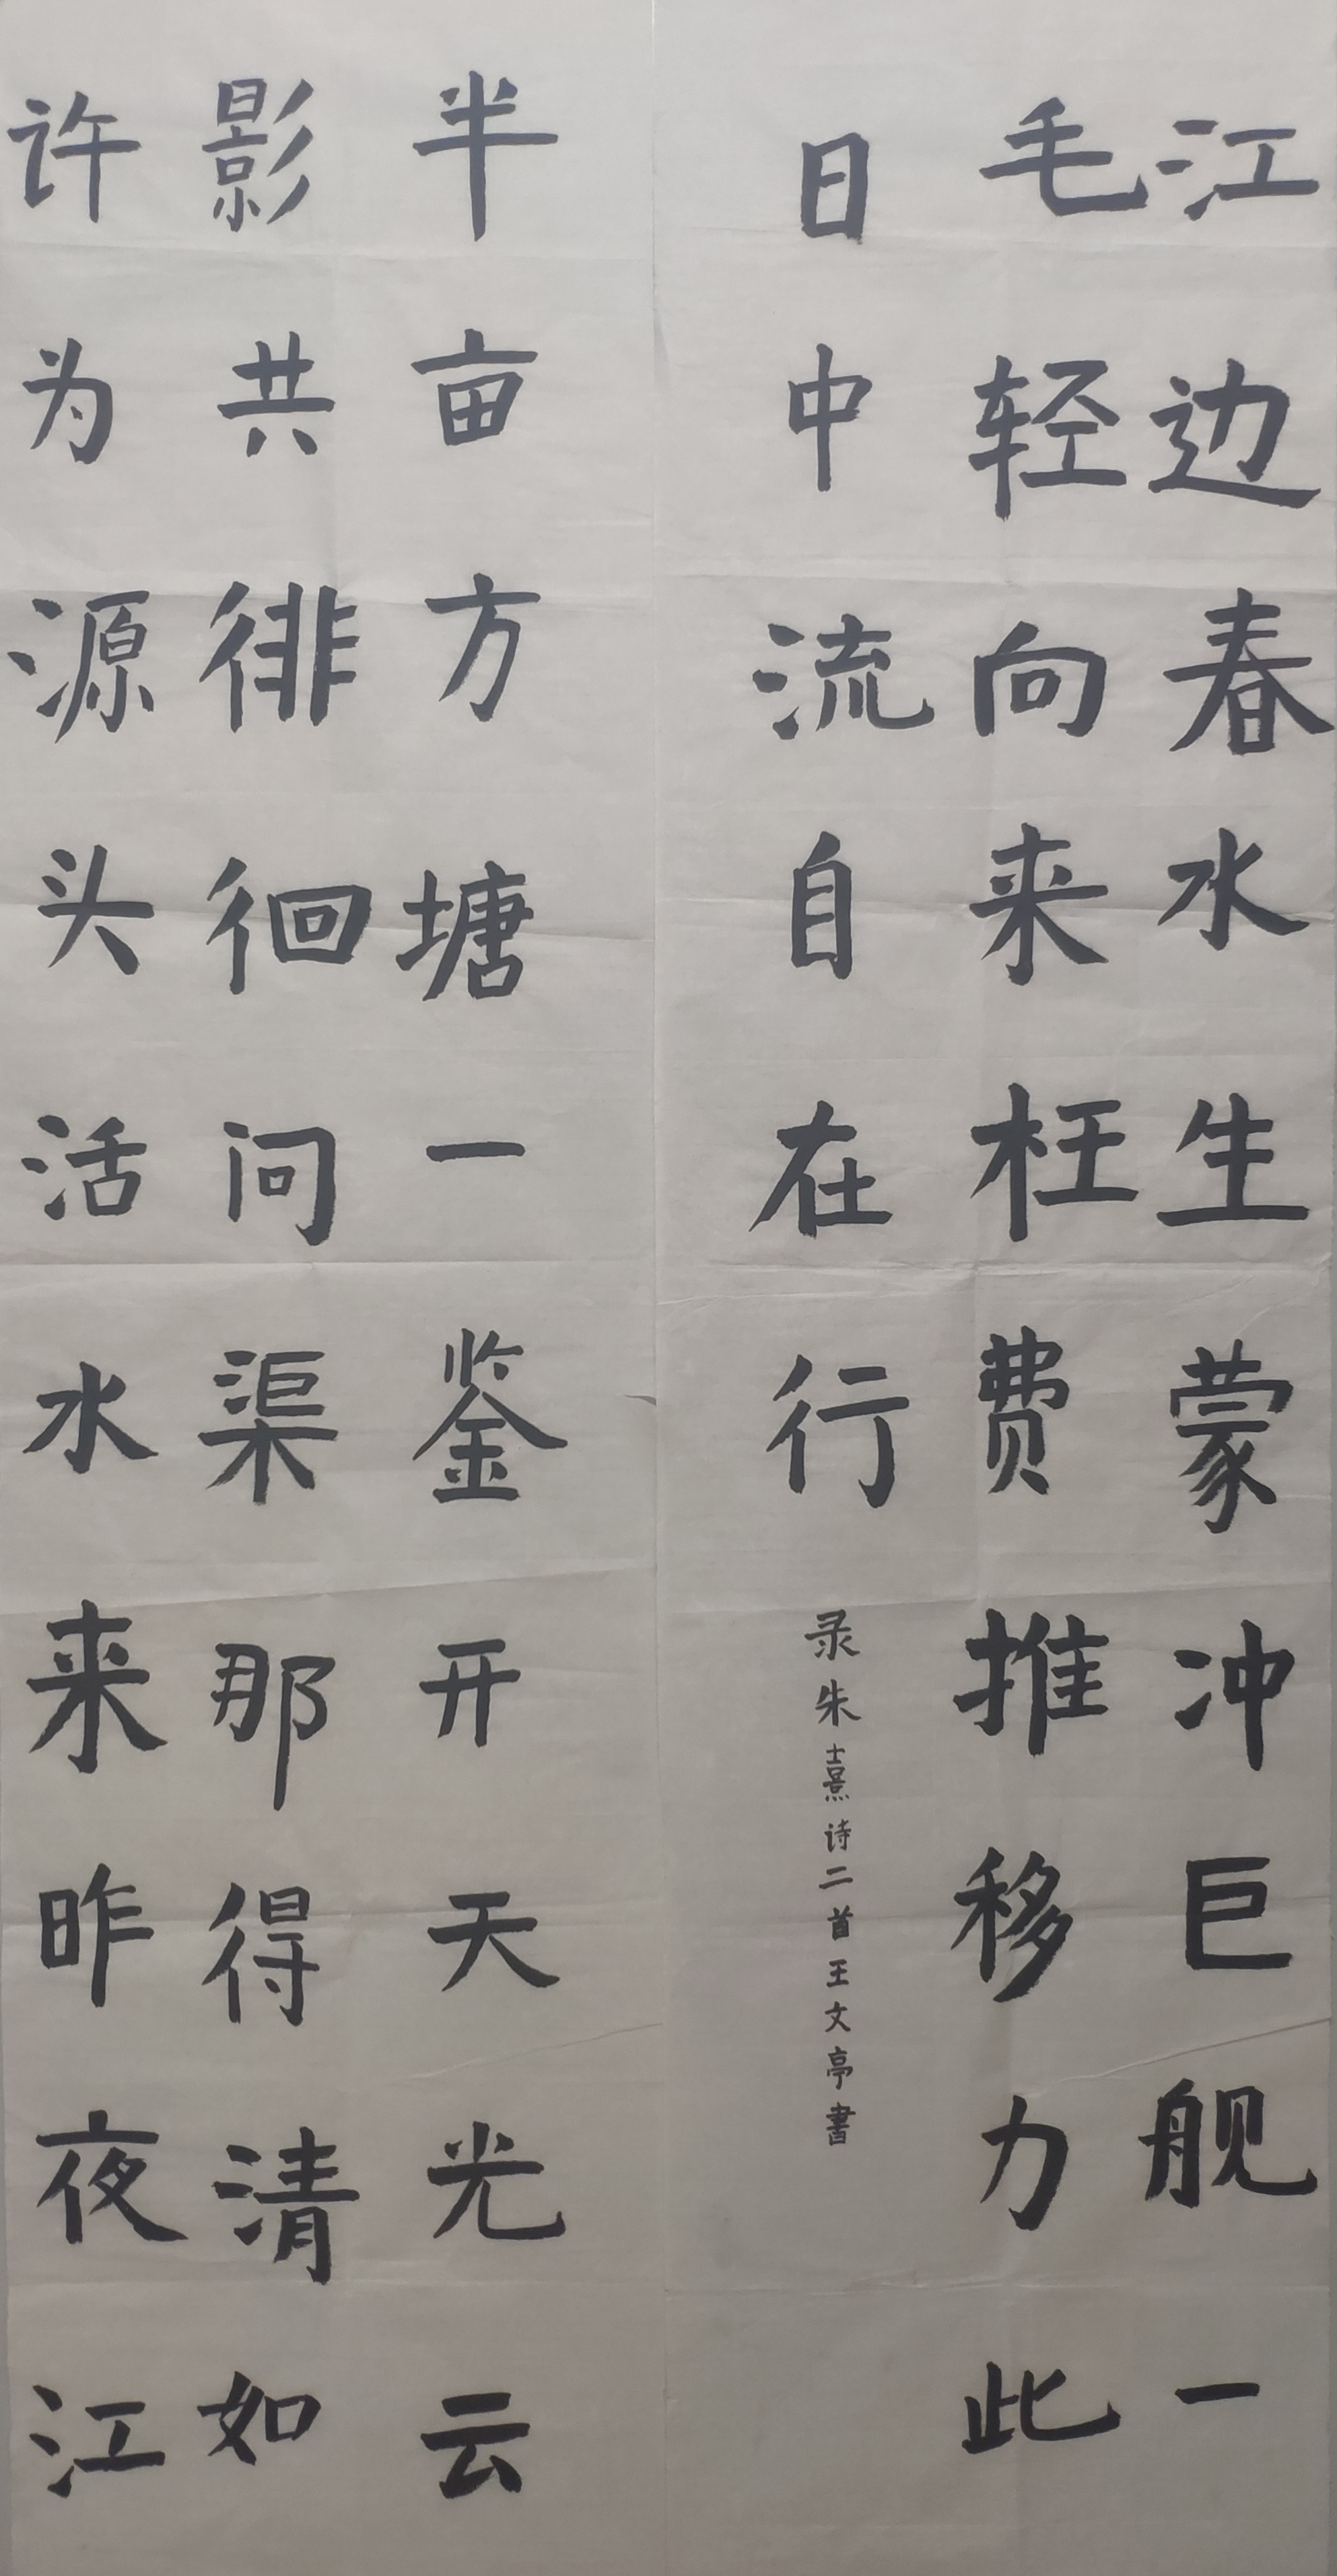 半亩方塘一鉴开天光云
影共徘徊问渠那得清如
许为源头活水来昨夜江
江边春水生蒙冲巨舰一
毛轻向来枉费推移力此
日中流自在行
录朱熹诗二首王文亭書